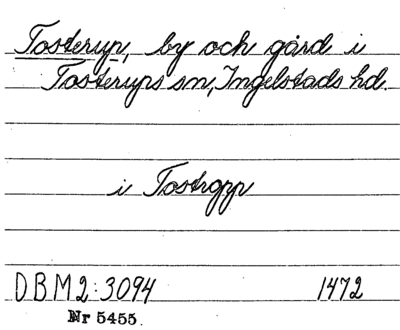 Tosterup, by och gård i
Tosterups sn, Ingelstads hd.
i Tostropp
DBM2:3094 1472
Nr 5455